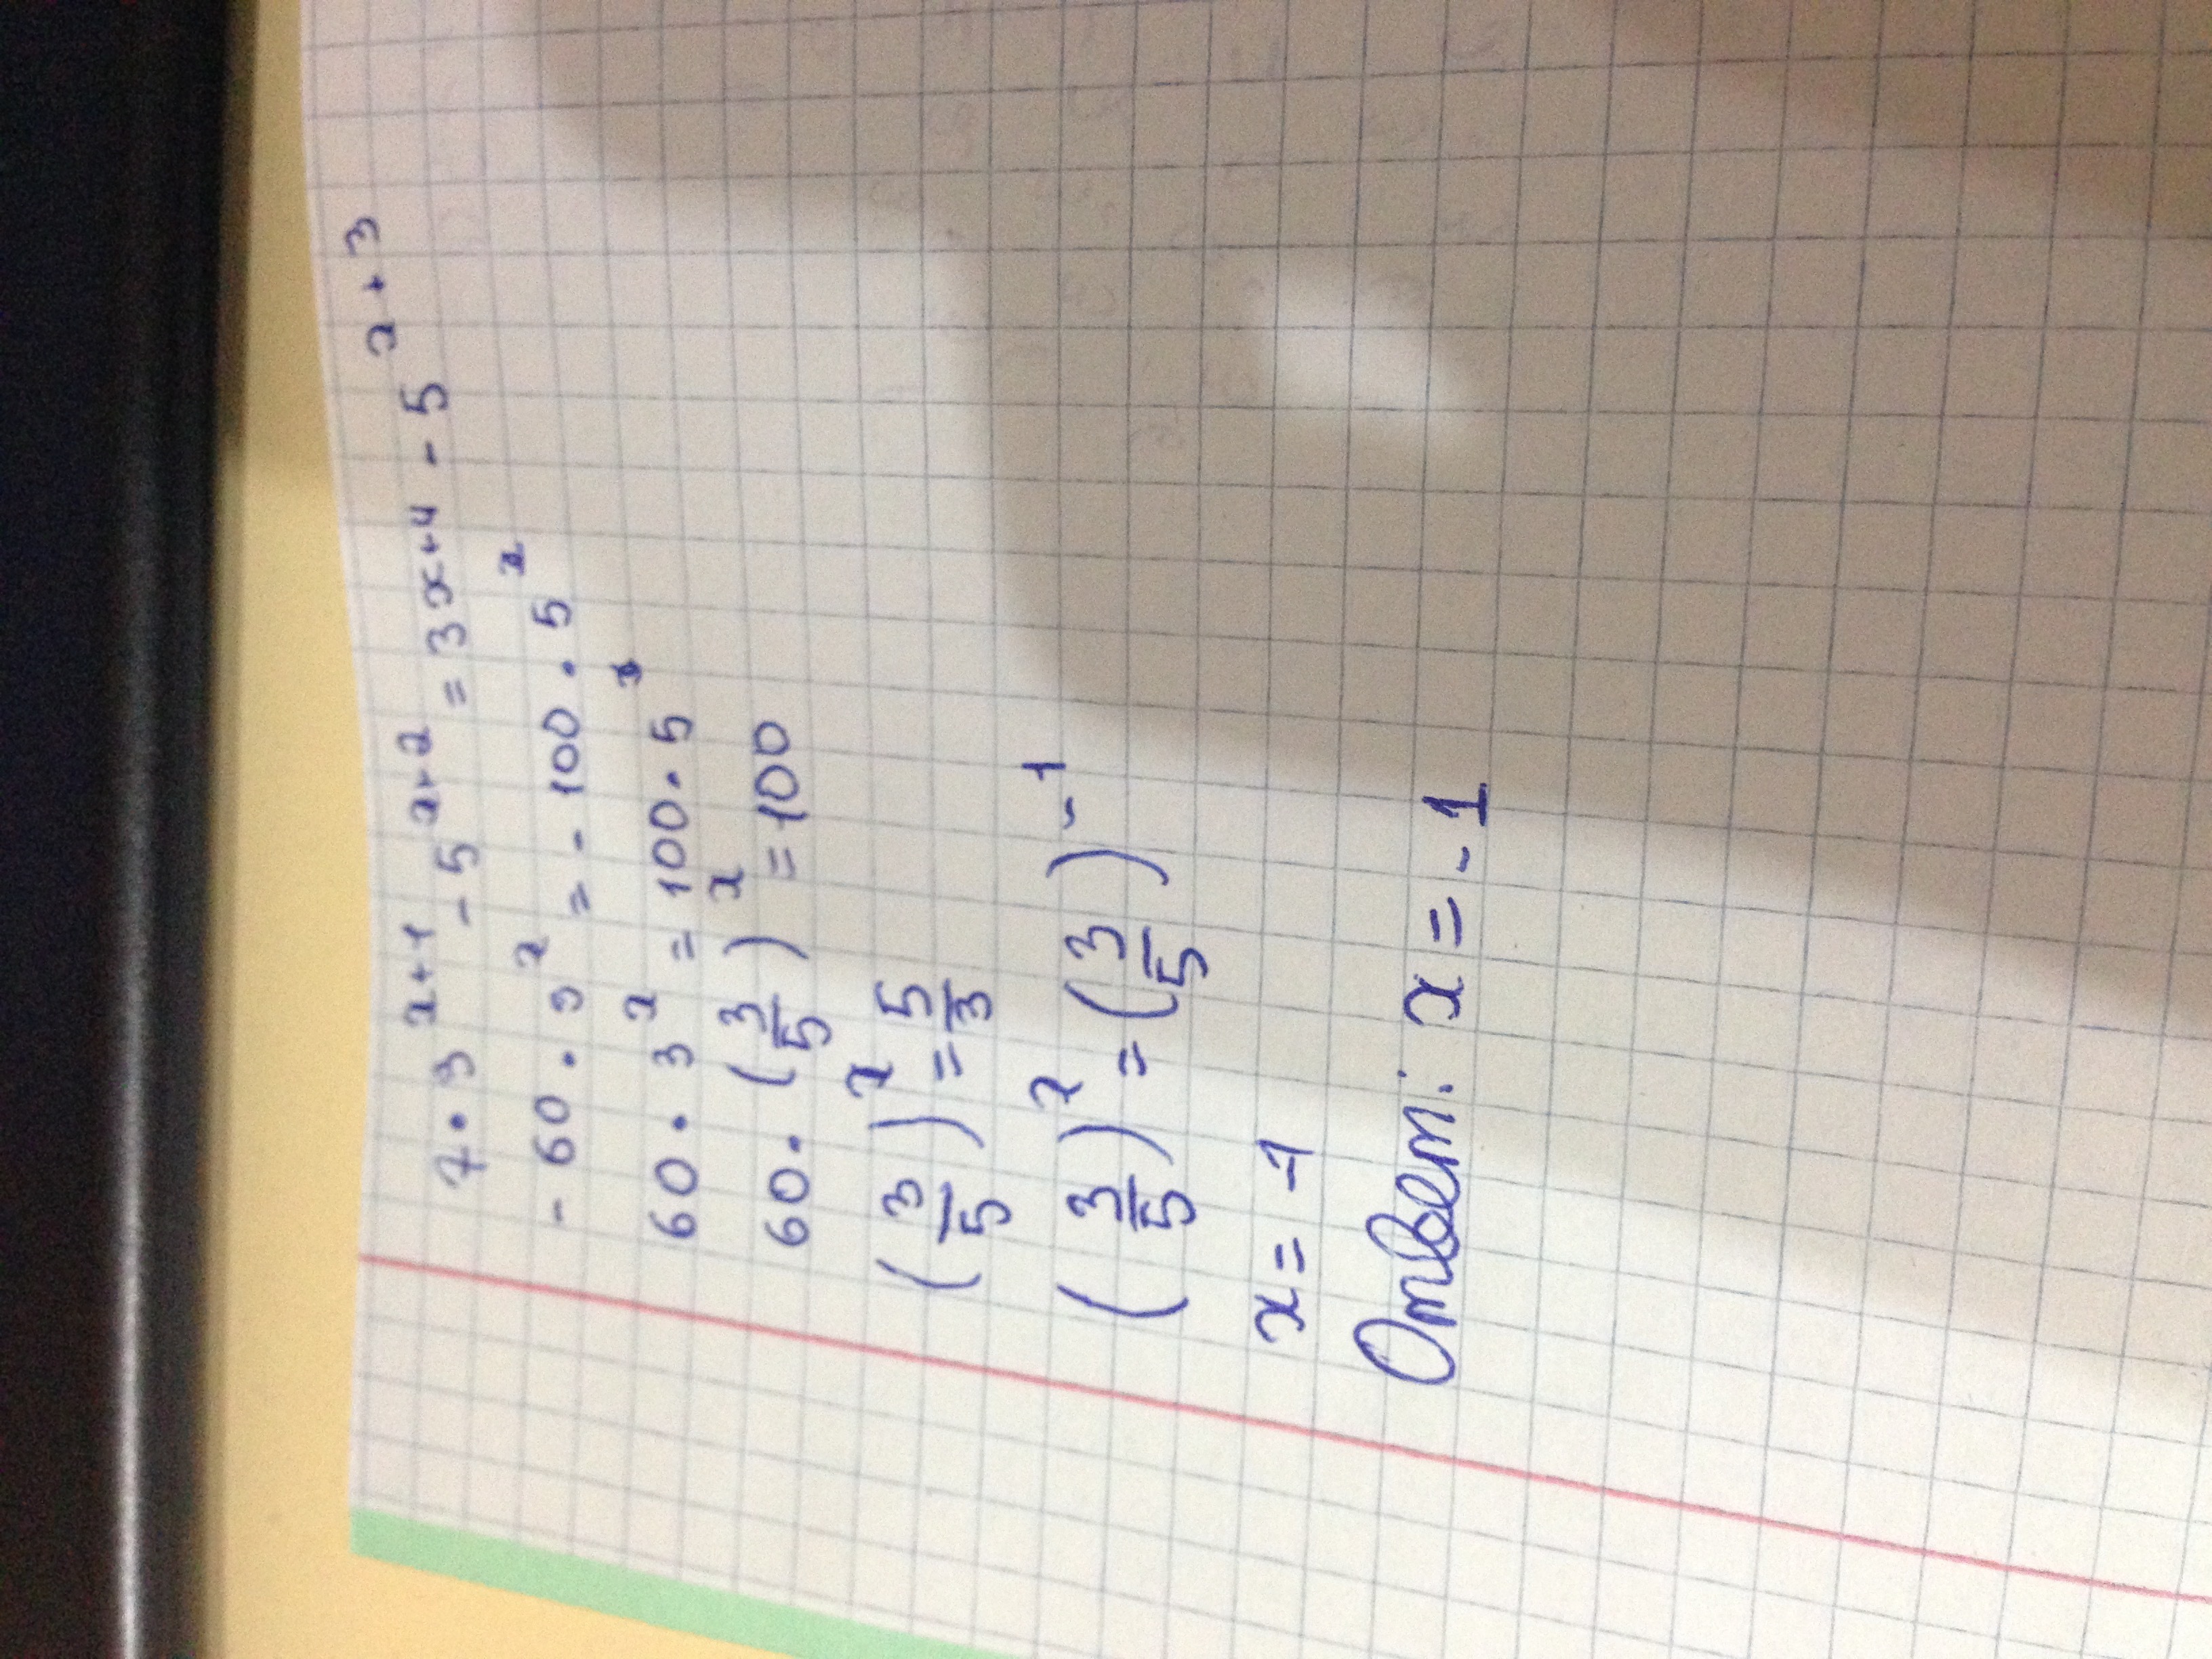 7 · 3^{x+1} - 5^{x+2} = 3^{x+4} - 5^{x+3}
- 60 · 3^x = - 100 · 5^x
60 · 3^x = 100 · 5^x
60 · (3/5)^x = 100
(3/5)^x = 5/3
(3/5)^x = (3/5)^{-1}
x = -1
Ответ: x = -1